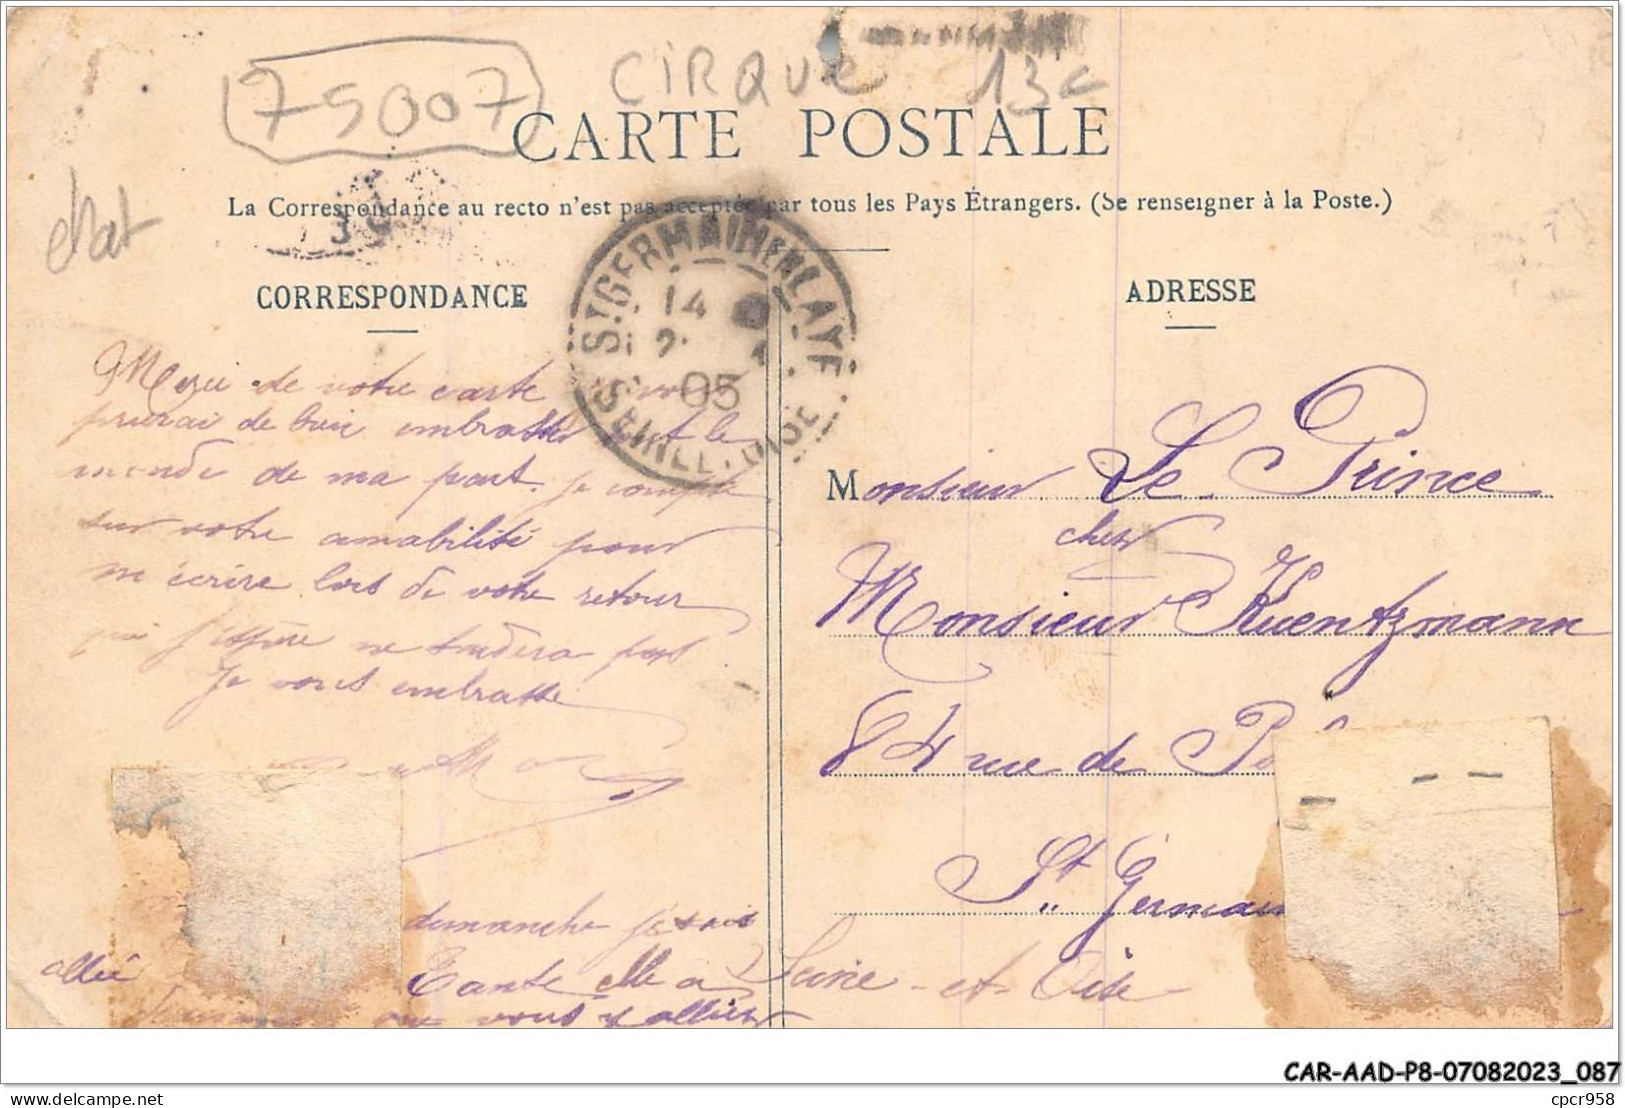 75007
CIRQUE 13c
CARTE POSTALE
chat
La Correspondance au recto n'est pas acceptée par tous les Pays Étrangers. (Se renseigner à la Poste.)
ST GERMAIN EN LAYE
14
12
05
SEINE
OISE
CORRESPONDANCE
ADRESSE
Merci de votre carte
prierai de bien embrasser tout le
monde de ma part. je compte
sur votre amabilité pour
m'écrire lors de votre retour
qui j'espère ne tardera pas.
Je vous embrasse
dimanche
allée
Tante
vous y alliez
Monsieur Le Prince
chez
Monsieur Kuentzmann
84 rue de
St Germain
Seine et Oise
CAR-AAD-P8-07082023_087
delcampe.net
cpcr958